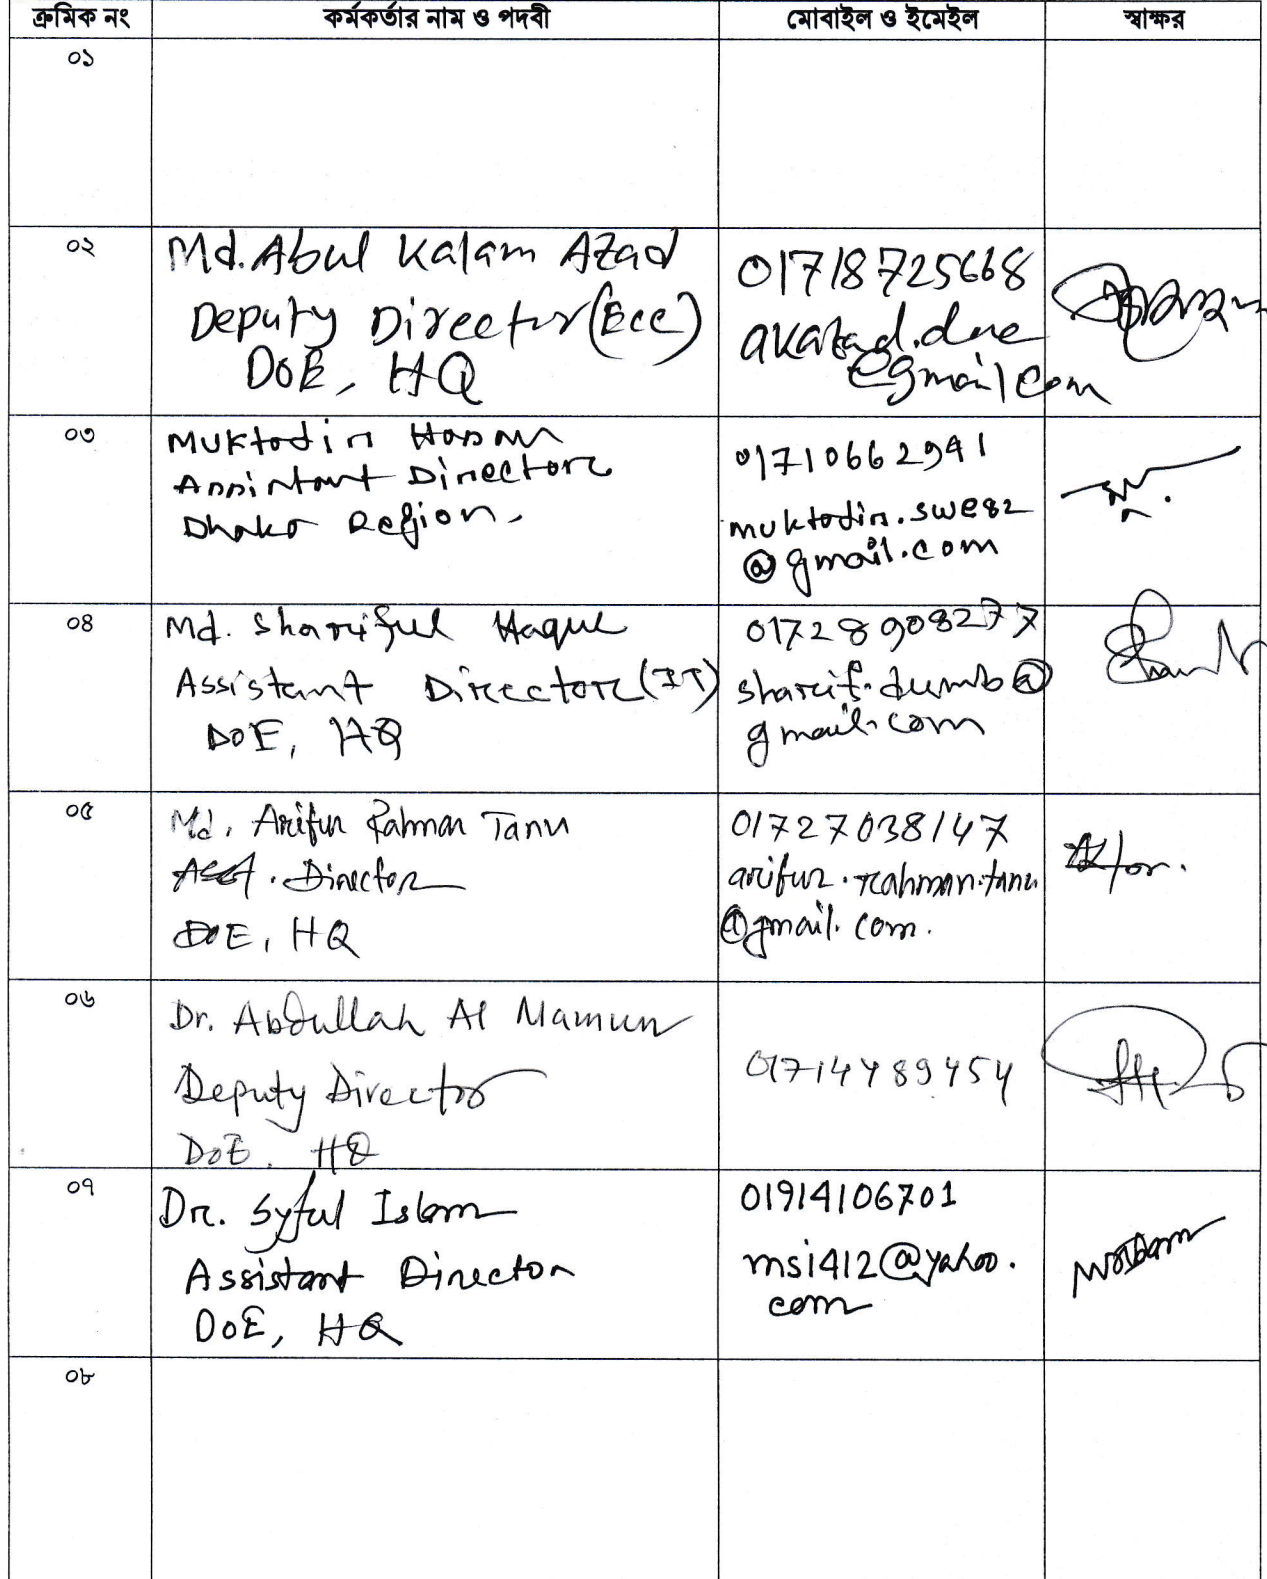 ক্রমিক নং কর্মকর্তার নাম ও পদবী মোবাইল ও ইমেইল স্বাক্ষর
০১
০২
Md. Abul Kalam Azad
Deputy Director (Ecc)
DoE, HQ
01718725668
akazad.doe
@gmail.com
০৩
Muktadir Hasan
Assistant Director
Dhaka Region.
01710662941
@gmail.com
০৪
Md. Shariful Haque
Assistant Director (IT)
DoE, HQ
01728908277
gmail.com
০৫
Md. Arifur Rahman Tanu
Asst. Director
DoE, HQ
01727038147
arifur.rahman.tanu
@gmail.com.
০৬
Dr. Abdullah Al Mamun
Deputy Director
DoE, HQ
০৭
Dr. Syful Islam
Assistant Director
DoE, HQ
01914106701
msi412@yahoo.
com
০৮